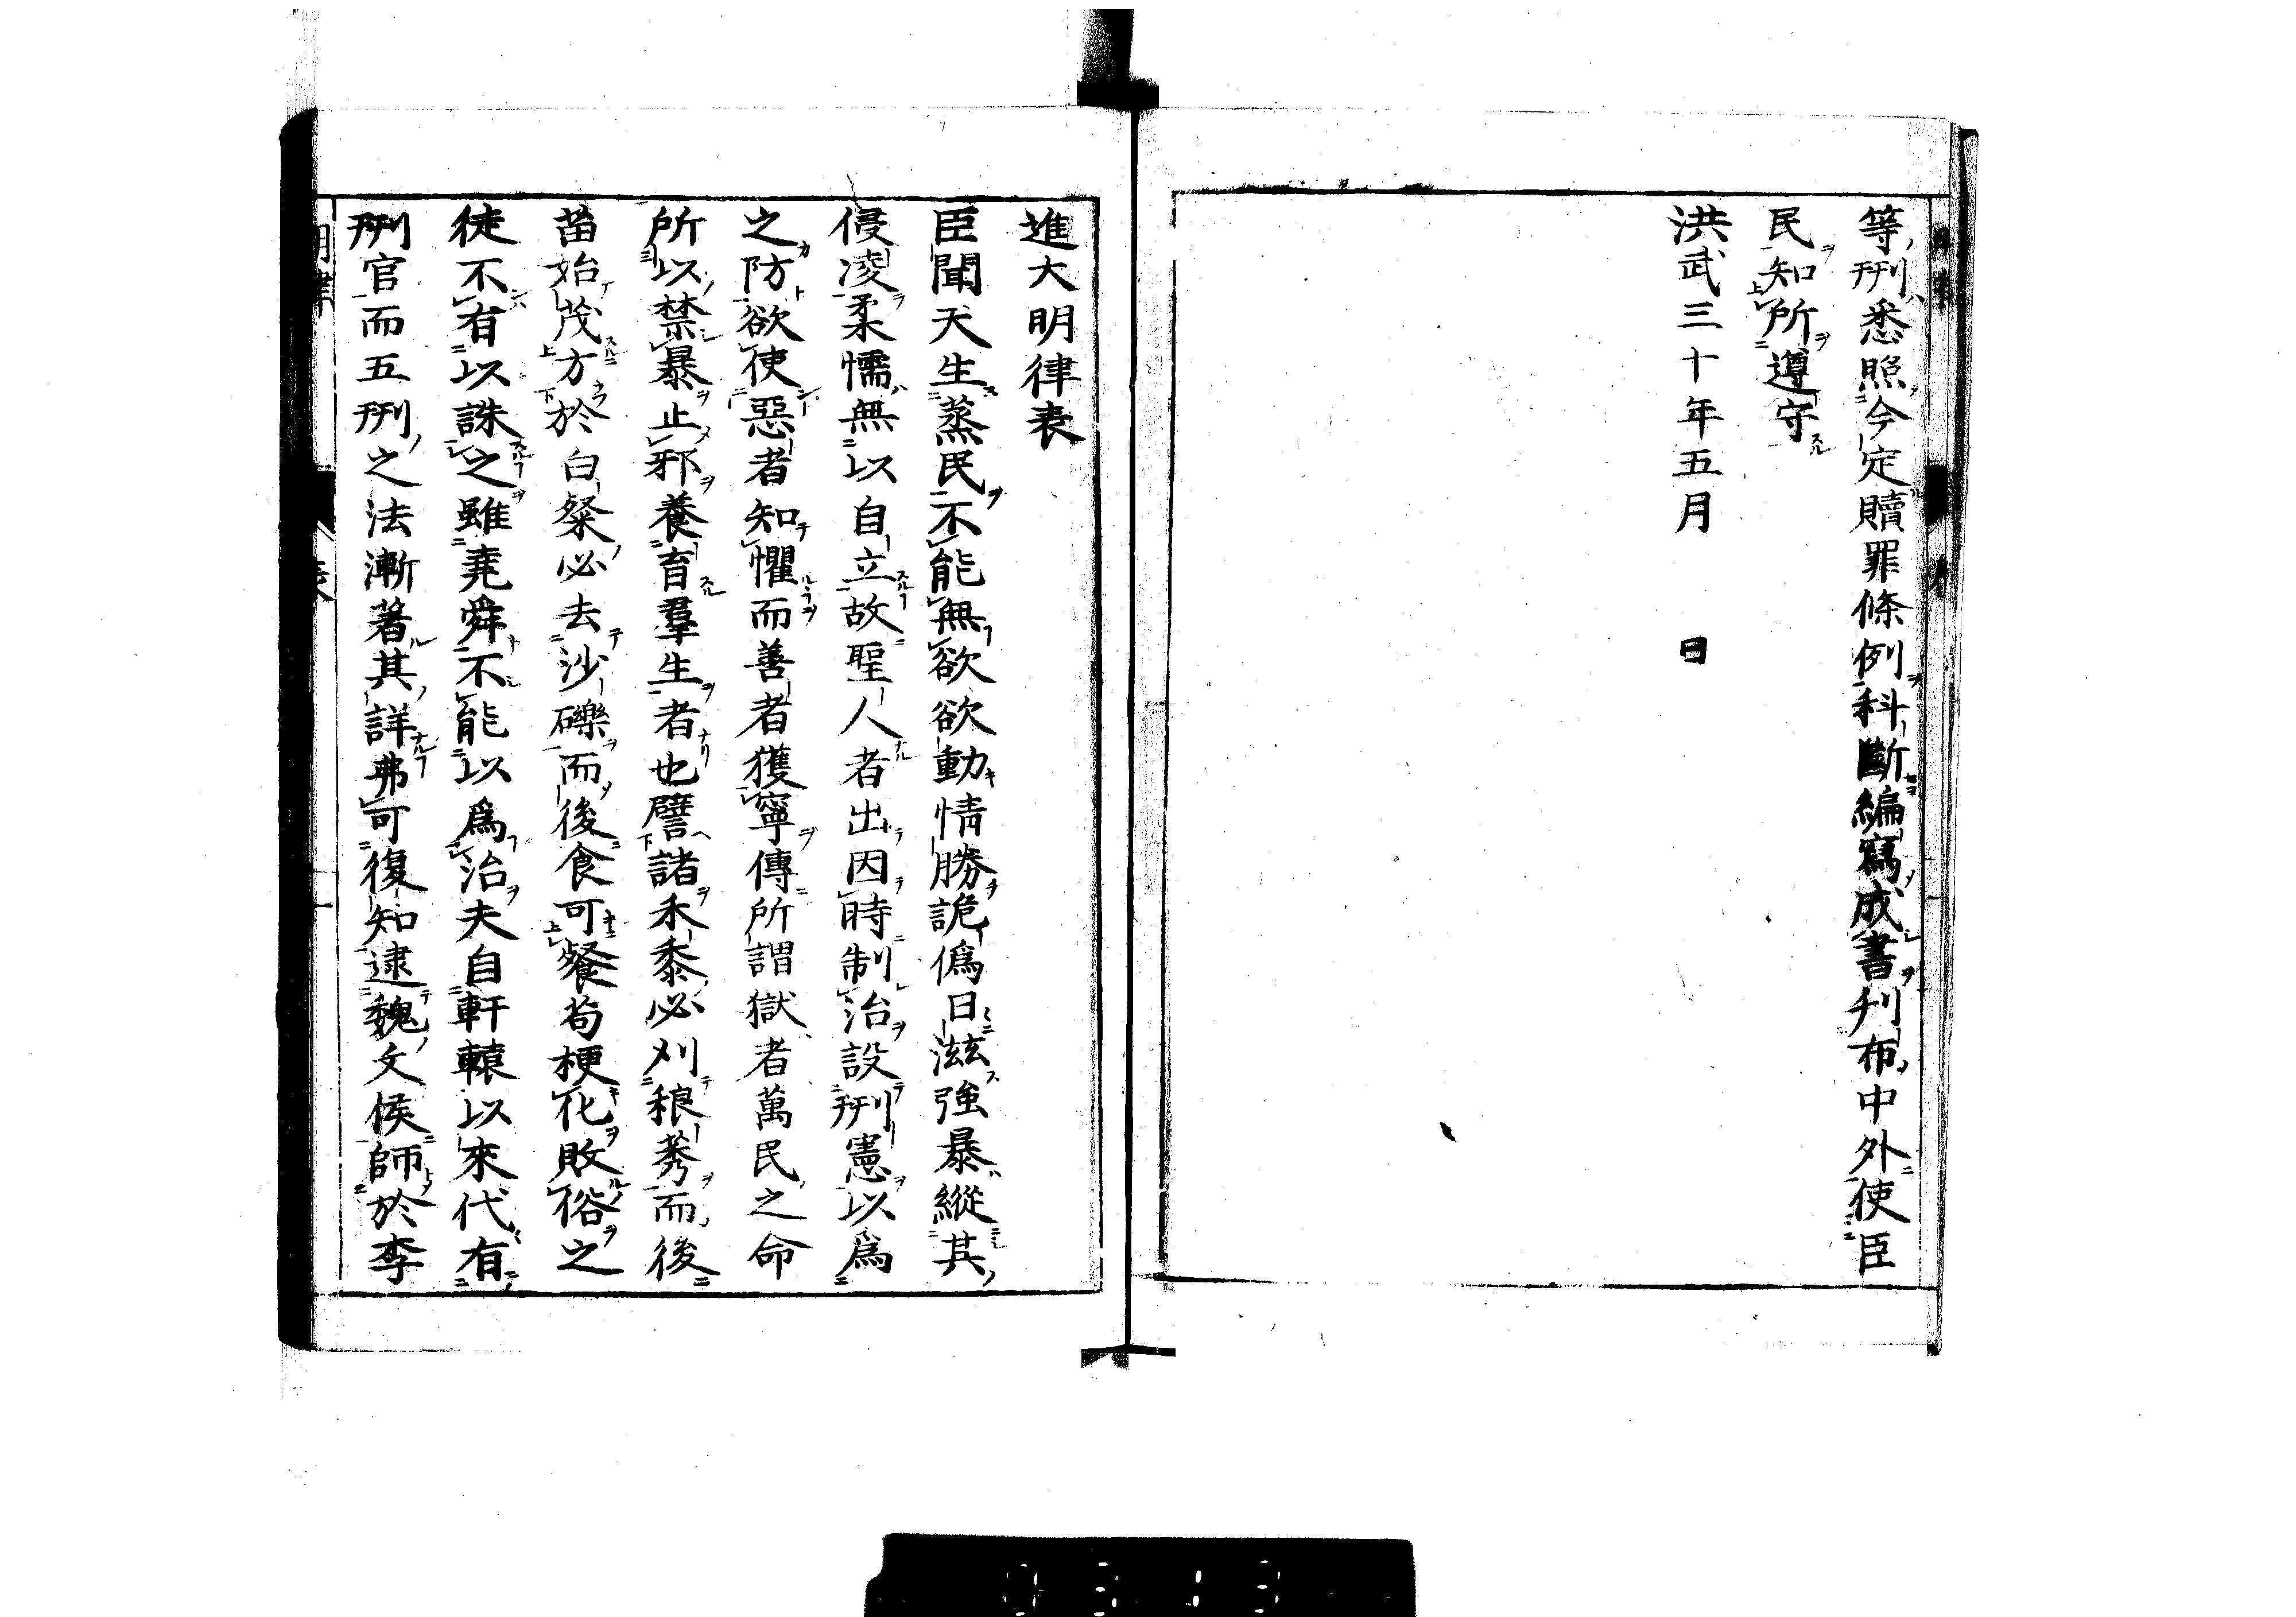 等刑悉照今定贖罪條例科斷編寫成書刋布中外使臣
民知所遵守
洪武三十年五月　日
進大明律表
臣聞天生蒸民不能無欲欲動情勝詭偽日滋強暴縱其
侵凌柔懦無以自立故聖人者出因時制治設刑憲以爲
之防欲使惡者知懼而善者獲寧傳所謂獄者萬民之命
所以禁暴止邪養育羣生者也譬諸禾黍必刈稂莠而後
苗始茂方於白粲必去沙礫而後食可餐苟梗化敗俗之
徒不有以誅之雖堯舜不能以爲治夫自軒轅以來代有
刑官而五刑之法漸著其詳弗可復知逮魏文侯師於李